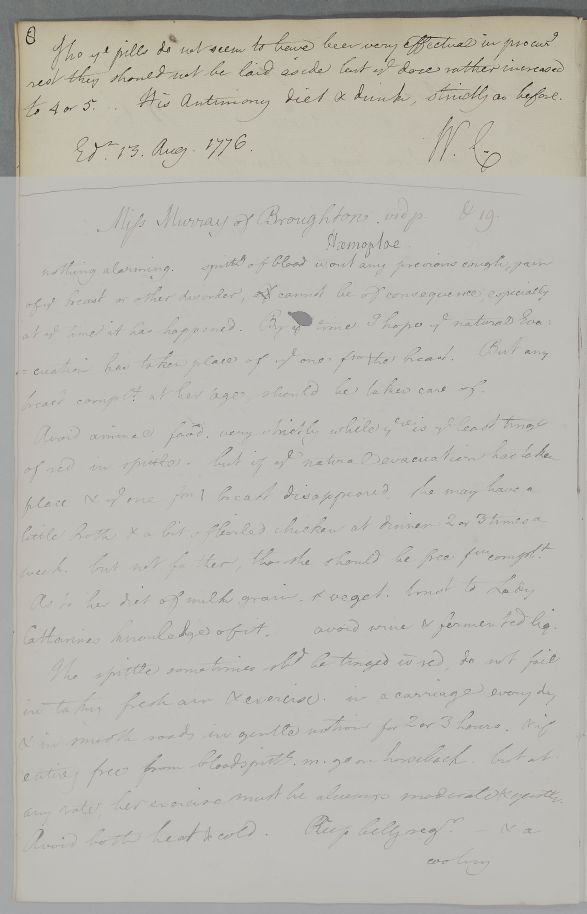 8
Tho ye pills do not seem to have been very effectual in procurg
rest they should not be laid aside but ye dose rather increased
to 4 or 5. . His Antimony diet & drink, strictly as before.
Edr. 13. Aug. 1776. W. C.
Miss Murray of Broughton. vid p. & 19.
Hæmoptoe.
nothing alarming. spittg of blood wout any previous cough, pain
of ye breast or other disorder, cannot be of consequence especially
at ye time it has happened. By ye time I hope ye natural Eva-
=cuation has taken place of ye one from the breast. But any
breast complt at her age, should be taken care of.
Avoid animal food. very strictly while yre is ye least tinge
of red in spittle. but if ye natural evacuation has taken
place & ye one from breast disappeared, she may have a
little broth & a bit of boiled chicken at dinner 2 or 3 times a
week. but not farther, tho she should be free from complt.
As to her diet of milk, grain. & veget. trust to Lady
Catharines knowledge of it. avoid wine & fermented liq.
Tho spittle sometimes shd be tinged w red, do not fail
in taking fresh air & exercise. in a carriage every day
& in smooth roads in gentle motion for 2 or 3 hours. & if
entirely free from bloodspittg. m. go on horseback. but at
any rate, her exercise must be always moderate & gentle.
Avoid both heat & cold. Keep belly regr. - & a
cooling